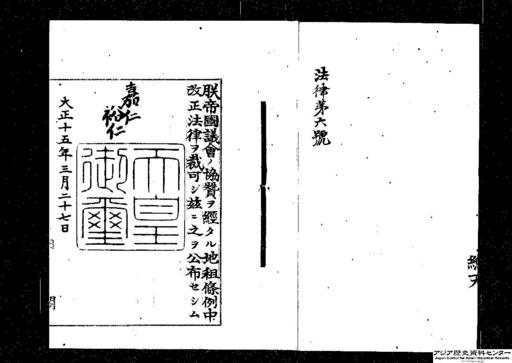 法律第六號
朕帝國議會ノ協贊ヲ經タル地租條例中
改正法律ヲ裁可シ茲ニ之ヲ公布セシム
嘉仁
裕仁
天皇
御璽
大正十五年三月二十七日
内 閣
アジア歴史資料センター
Japan Center for Asian Historical Records